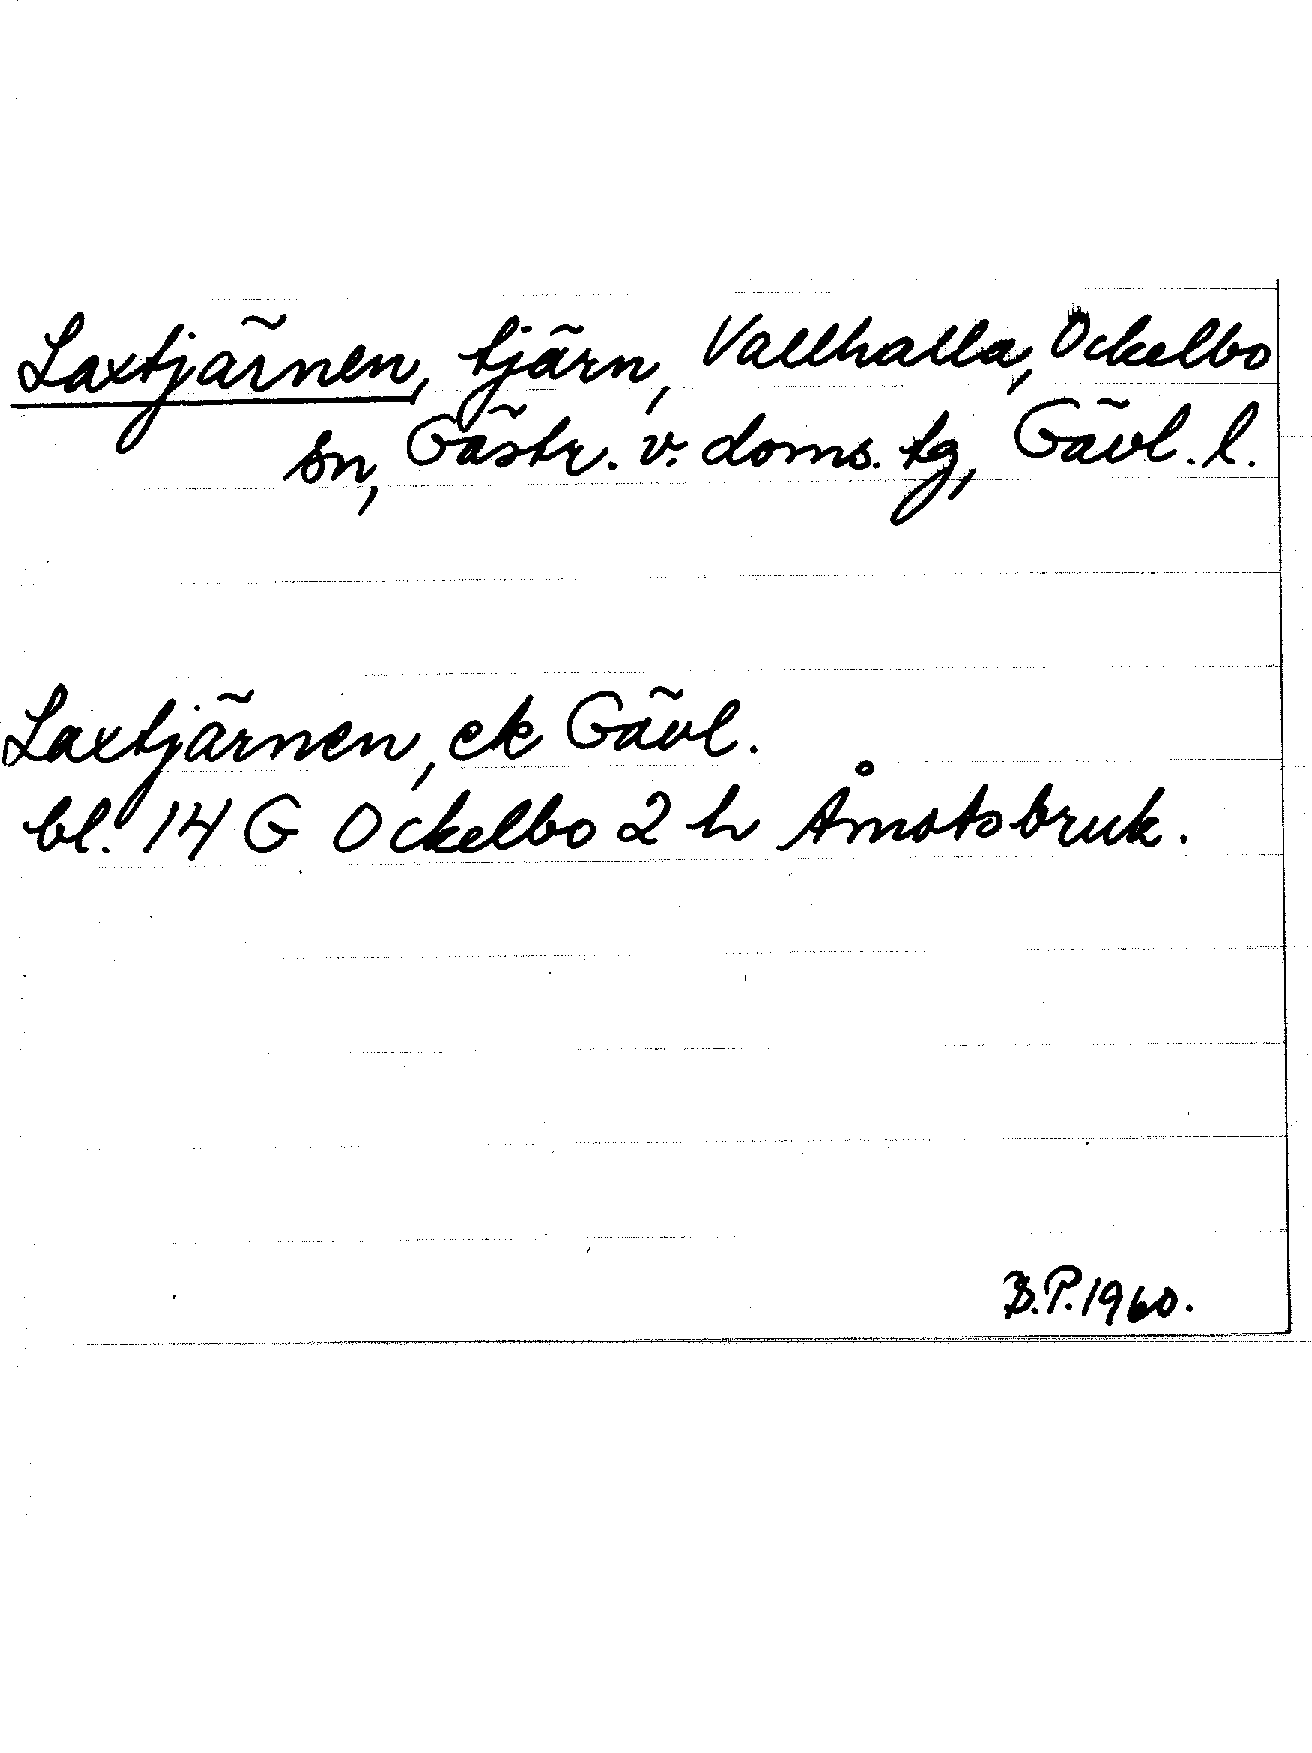 Laxtjärnen, tjärn, Vallhalla, Ockelbo
sn, Gästr. v. doms. tg, Gävl. l.
Laxtjärnen, ek Gävl.
bl. 14 G Ockelbo 2 h Åmotsbruk.
B.P. 1960.